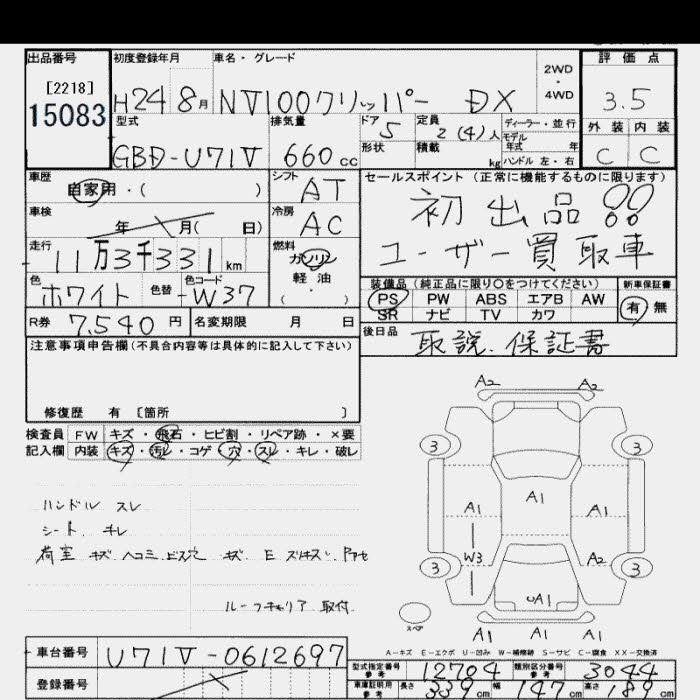 出品番号 初度登録年月 車名・グレード 2WD・4WD 評価点
[2218]
15083
H24 8月 NV100クリッパー DX 3.5
型式 排気量 ドア 定員 ディーラー・並行 外装 内装
GBD-U71V 660cc 5 2(4)人 モデル年式 年 C C
形状 積載 kg ハンドル 左・右
車歴 シフト セールスポイント (正常に機能するものに限ります)
自家用・( ) AT 初出品!!
車検 冷房
年 月( 日) AC ユーザー買取車
走行 燃料
11万3千331km ガソリン
色 色替 色コード 軽・油 装備品 (純正品に限り○をつけてください) 新車保証書
ホワイト W37 (・) PS PW ABS エアB AW 有 無
SR ナビ TV カワ
R券 7,540円 名変期限 月 日 後日品
取説、保証書
注意事項申告欄(不具合内容等は具体的に記入して下さい)
修復歴 有 [箇所 ]
検査員 FW キズ・飛石・ヒビ割・リペア跡・×要
記入欄 内装 キズ・汚レ・コゲ・穴・スレ・キレ・破レ
ハンドル スレ
シート キレ
荷室 キズ ヘコミ ビス穴
ルーフキャリア 取付
A2 A2
3 3
A1 A1 A1
W3 A2
3 3
A1
スペア A1 A1 A1
A-キズ E-エクボ U-凹み W-補修跡 S-サビ C-腐食 XX-交換済
車台番号 U71V-0612697
登録番号
型式指定番号 参考 12704 類別区分番号 参考 3044
車庫証明用 参考 長さ 339cm 幅 147cm 高さ cm